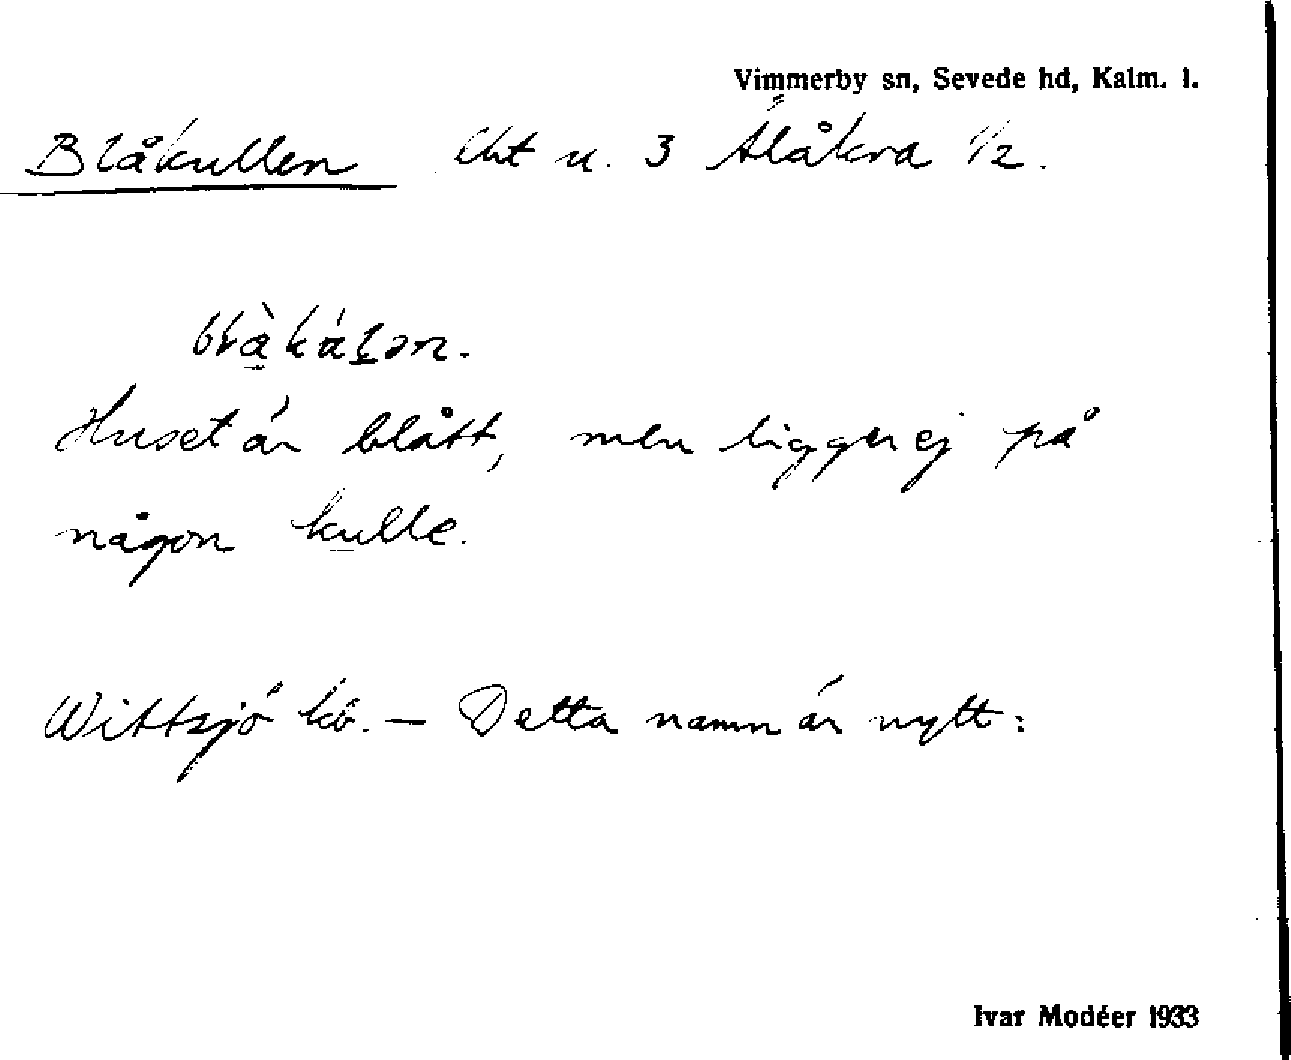 Vimmerby sn, Sevede hd, Kalm. l.
Blåkullen u. 3 Ålåkra 1/2.
Huset är blått, men ligger ej på
någon kulle.
Wittsjö kb. — Detta namn är nytt:
Ivar Modéer 1933